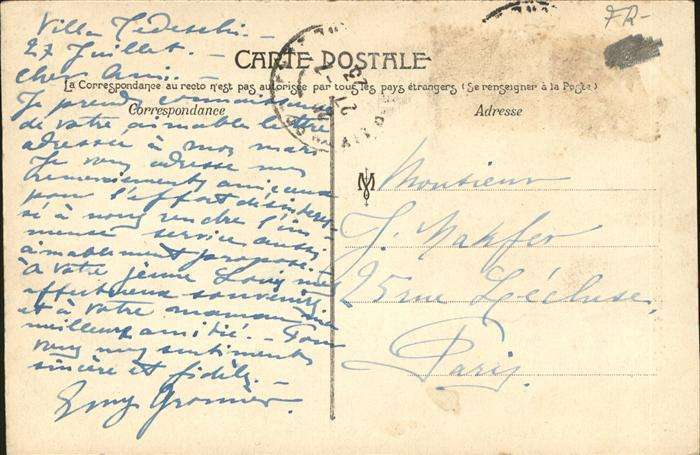 Villa Tedeschi. -
27 Juillet. -
Cher Ami. -
Je prends connaissance
de votre aimable lettre
adressée à mon mari
Je vous adresse mes
remerciements amicaux
pour l'effort désintéres-
sé à nous rendre l'im
mense service aussi
aimablement proposé.
à votre jeune Louis mes
affectueux souvenirs,
et à votre maman ma
meilleure amitié. - Pour
vous mes sentiments
sincère et fidèle. -
FR-
CARTE POSTALE
La Correspondance au recto n'est pas autorisée par tous les pays étrangers (Se renseigner à la Poste)
Correspondance
Adresse
M
Monsieur
J.
25 rue Lécluse,
Paris.